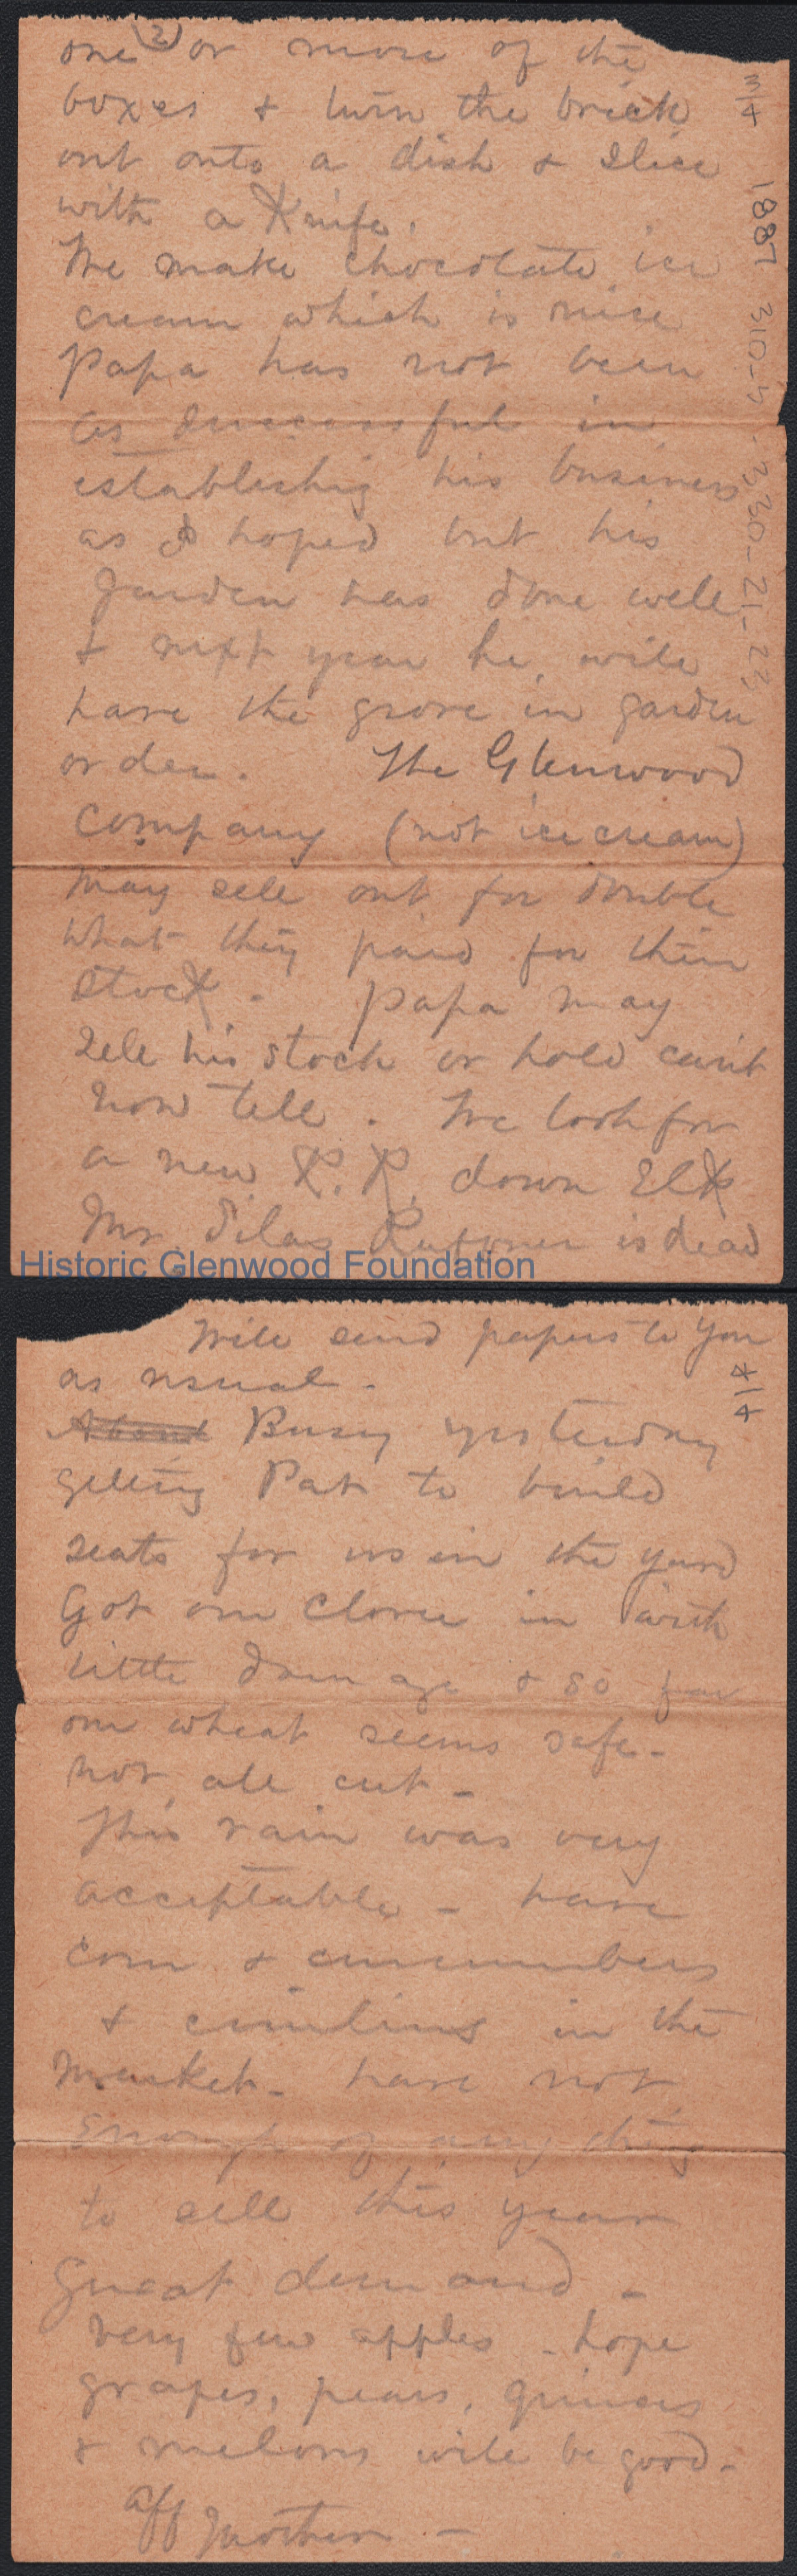 (2)
one or more of the
boxes & turn the brick
out onto a dish & slice
with a Knife.
We make chocolate ice
cream which is nice
Papa has not been
as successful in
establishing his business
as I hoped but his
garden has done well
& next year he will
have the grove in garden
order. The Glenwood
Company (not ice cream)
may sell out for double
what they paid for their
stock. Papa may
sell his stock or hold can't
now tell. We look for
a new R. R. down Elk
Mr. Silas is dead
3/4 1887 310-5-330-21-22
Historic Glenwood Foundation
Will send papers to you
as usual.
About Busy yesterday
getting Pat to build
seats for us in the yard
Got our Clover in with
little damage & so far
our wheat seems safe -
not all cut -
This rain was very
acceptable - have
corn & cucumbers
& cimlins in the
market - have not
enough of any thing
to sell this year
Great demand -
very few apples - hope
grapes, pears, quinces
& melons will be good -
aff Mother -
4/4